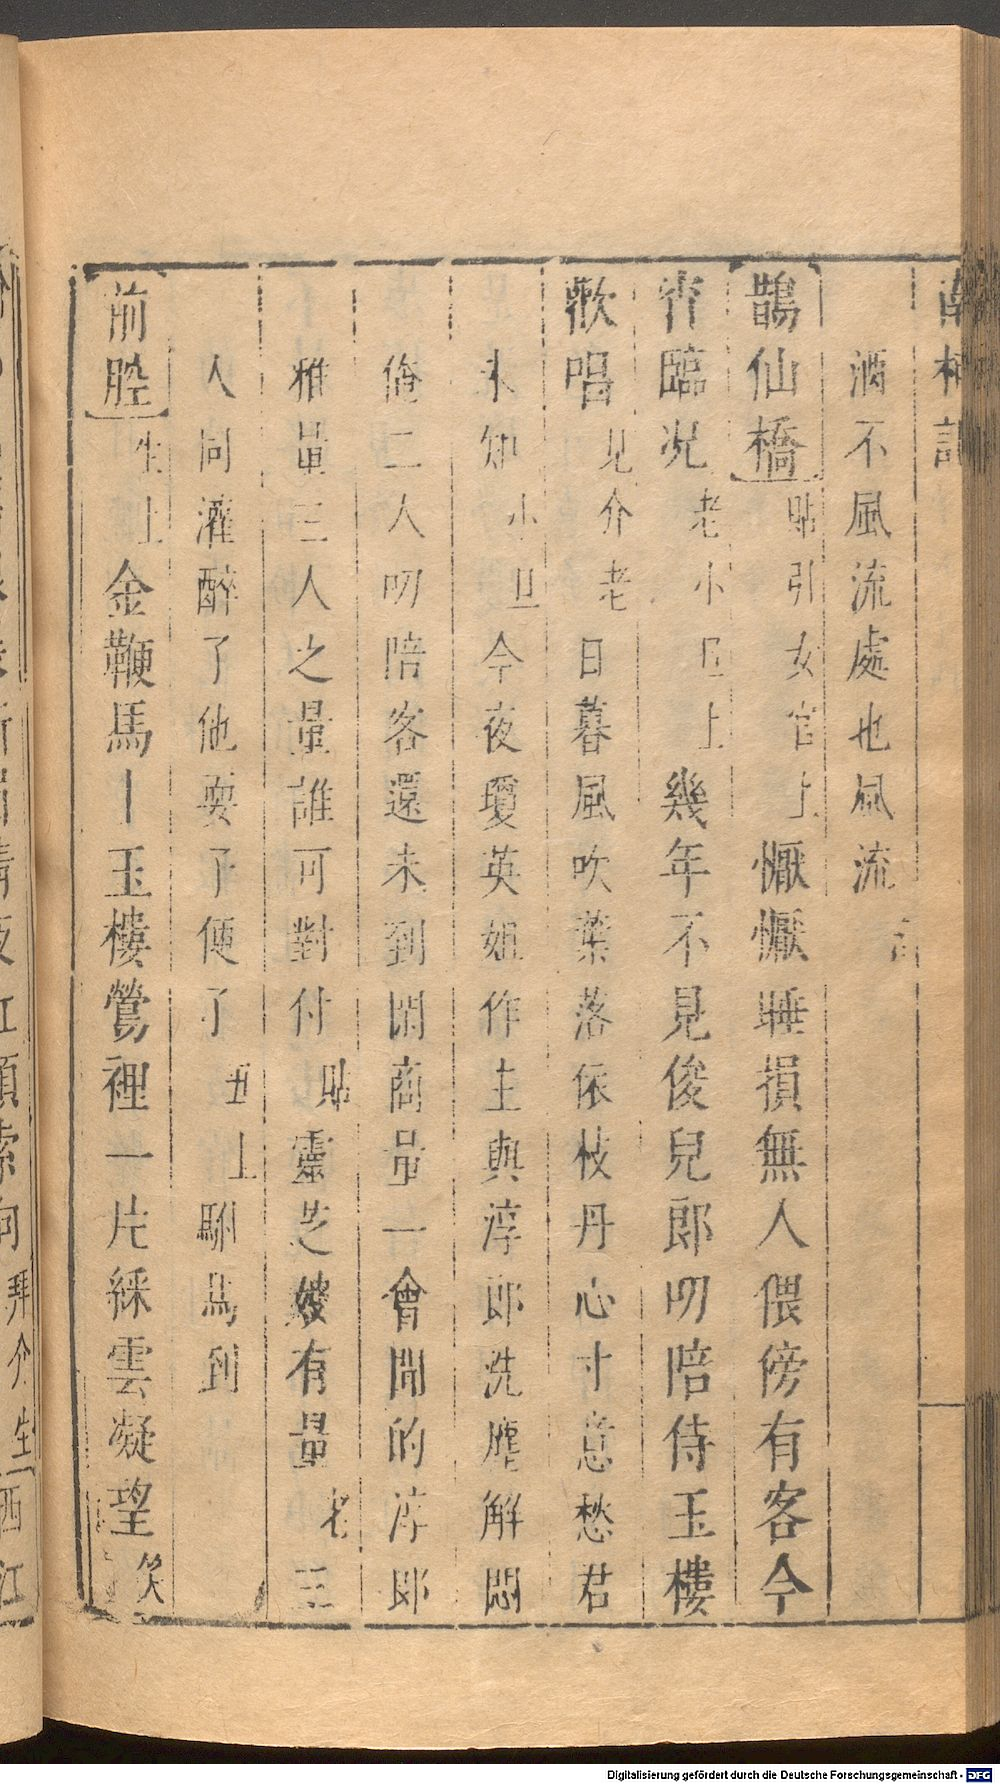 南柯記
酒不風流處也風流
鵲仙橋 貼引女官上 懨懨睡損無人偎傍有客今
宵臨况 老小旦上 幾年不見俊兒郎叨陪侍玉樓
歡唱 見介老 日暮風吹葉落依枝丹心寸意愁君
未知 小旦 今夜瓊英姐作主與淳郎洗塵解悶
俺二人叨陪客還未到閒商量一會聞的淳郎
雅量三人之量誰可對付 貼 靈芝嫂有量 老 三
人同灌醉了他耍子便了 丑上 駙馬到
前腔 生上 金鞭馬上玉樓鶯裡一片綵雲凝望 笑
拜介生
西江
Digitalisierung gefördert durch die Deutsche Forschungsgemeinschaft - DFG